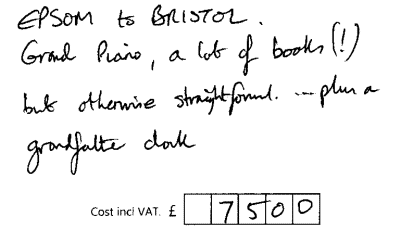 EPSOM to BRISTOL.
Grand Piano, a lot of books (!)
but otherwise straightforward. ... plus a
grandfather clock
Cost incl VAT. £ 7500